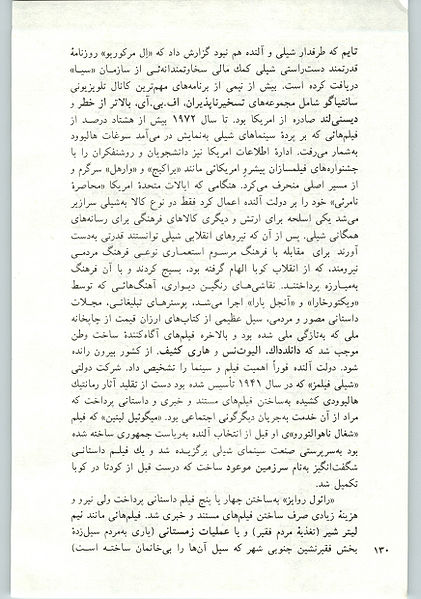 تایم که طرفدار شیلی و آلنده هم نبود گزارش داد که «اِل مرکوریو» روزنامهٔ
قدرتمند دست‌راستی شیلی کمك مالی سخاوتمندانه‌ئی از سازمان «سیا»
دریافت کرده است. بیش از نیمی از برنامه‌های مهم‌ترین کانال تلویزیونی
سانتیاگو شامل مجموعه‌های تسخیرناپذیران، اف.بی.آی، بالاتر از خطر و
دیسنی‌لند صادره از امریکا بود. تا سال ۱۹۷۲ بیش از هشتاد درصد از
فیلم‌هائی که بر پردهٔ سینماهای شیلی به‌نمایش در می‌آمد سوغات هالیوود
به‌شمار می‌رفت. ادارهٔ اطلاعات امریکا نیز دانشجویان و روشنفکران را با
جشنواره‌های فیلمسازان پیشرو امریکائی مانند «براکیج» و «وارهل» سرگرم و
از مسیر اصلی منحرف می‌کرد. هنگامی که ایالات متحدهٔ امریکا «محاصرهٔ
نامرئی» خود را بر دولت آلنده اعمال کرد فقط دو نوع کالا به‌شیلی سرازیر
می‌شد یکی اسلحه برای ارتش و دیگری کالاهای فرهنگی برای رسانه‌های
همگانی شیلی. پس از آن که نیروهای انقلابی شیلی توانستند قدرتی به‌دست
آورند برای مقابله با فرهنگ مرسوم استعماری نوعی فرهنگ مردمی
نیرومند، که از انقلاب کوبا الهام گرفته بود، بسیج کردند و با آن فرهنگ
به‌مبارزه پرداختند. نقاشی‌های رنگین دیواری، آهنگ‌هائی که توسط
«ویکتورخارا» و «آنجل پارا» اجرا می‌شد، پوسترهای تبلیغاتی، مجلات
داستانی مصور و مردمی، سیل عظیمی از کتاب‌های ارزان قیمت از چاپخانه
ملی که به‌تازگی ملی شده بود و بالاخره فیلم‌های آگاه‌کنندهٔ ساخت وطن
موجب شد که دانلدداك، الیوت‌نس و هاری کثیف، از کشور بیرون رانده
شود. دولت آلنده فوراً اهمیت فیلم و سینما را تشخیص داد. شرکت دولتی
«شیلی فیلمز» که در سال ۱۹۴۱ تأسیس شده بود دست از تقلید آثار رمانتیك
هالیوودی کشیده به‌ساختن فیلم‌های مستند و خبری و داستانی پرداخت که
مراد از آن خدمت به‌جریان دیگرگونی اجتماعی بود. «میگوئیل لیتین» که فیلم
«شغال ناهوالتورو»ی او قبل از انتخاب آلنده به‌ریاست جمهوری ساخته شده
بود به‌سرپرستی صنعت سینمای شیلی برگزیده شد و یك فیلم داستانی
شگفت‌انگیز به‌نام سرزمین موعود ساخت که درست قبل از کودتا در کوبا
تکمیل شد.
«رائول روایز» به‌ساختن چهار یا پنج فیلم داستانی پرداخت ولی نیرو و
هزینهٔ زیادی صرف ساختن فیلم‌های مستند و خبری شد. فیلم‌هائی مانند نیم
لیتر شیر (تغذیهٔ مردم فقیر) و یا عملیات زمستانی (یاری به‌مردم سیل‌زدهٔ
بخش فقیرنشین جنوبی شهر که سیل آن‌ها را بی‌خانمان ساخته است)
۱۳۰